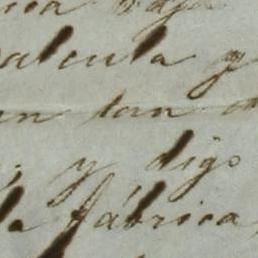 calcula y
un tan
; y digo
la fábrica,